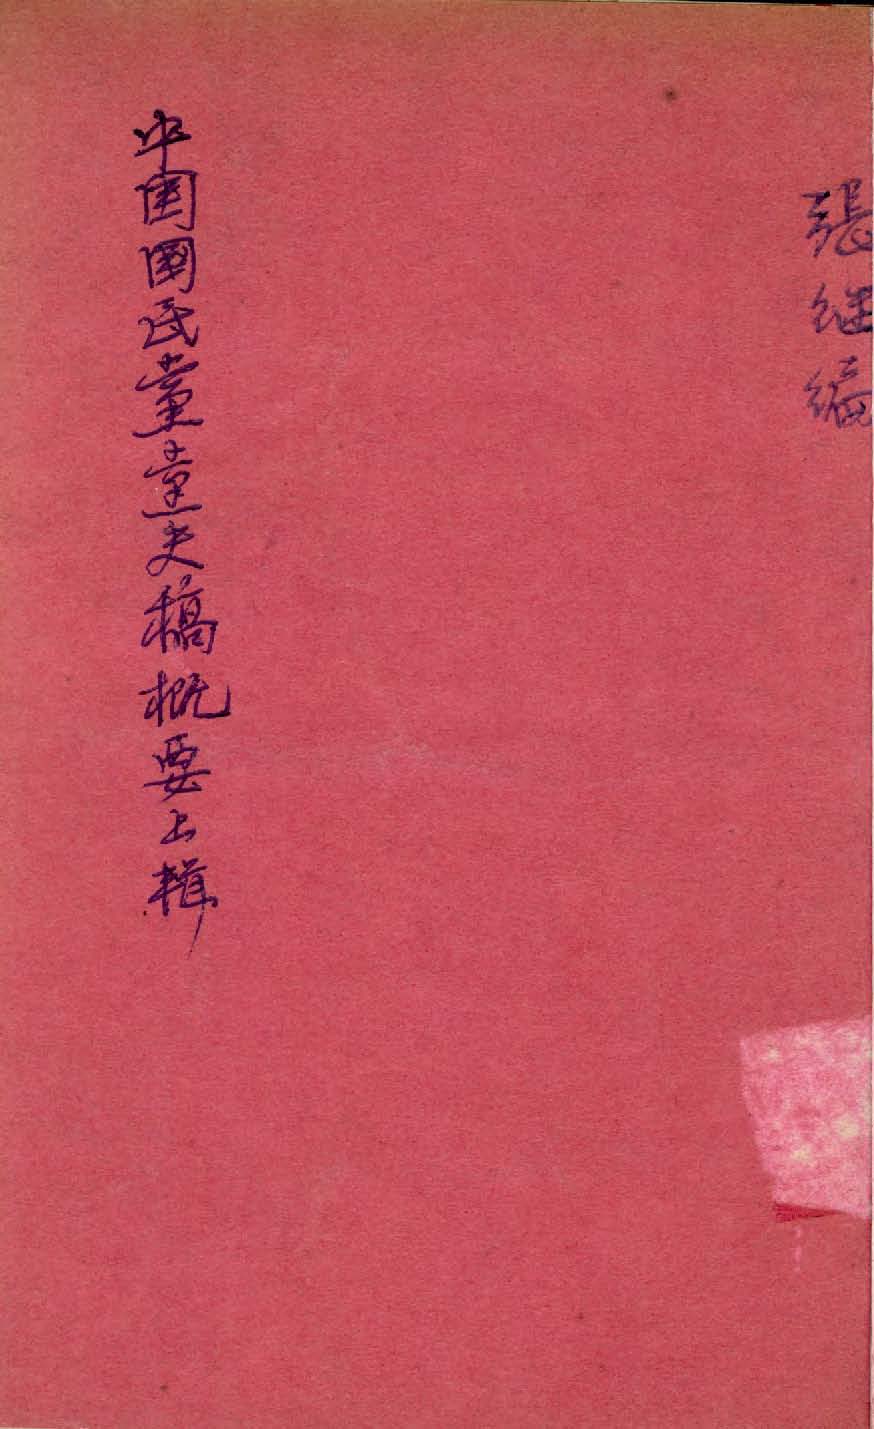 張继編
中国國民黨党史稿概要上輯